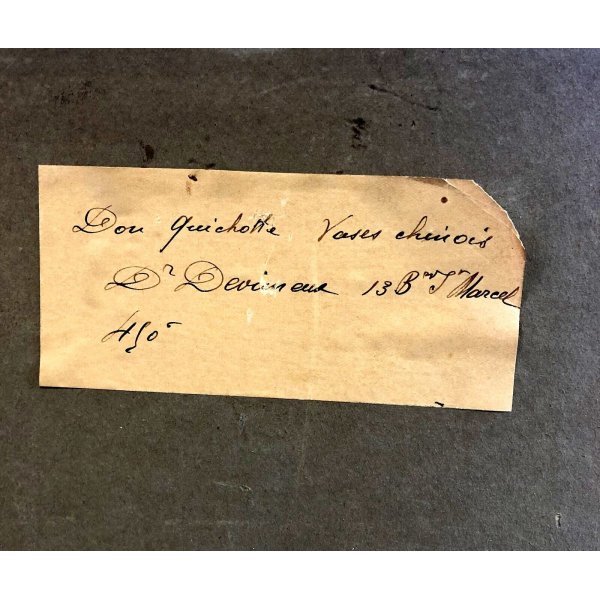 Don Quichotte Vases chinois
Dr Devimeux 13 Bd St Marcel
450